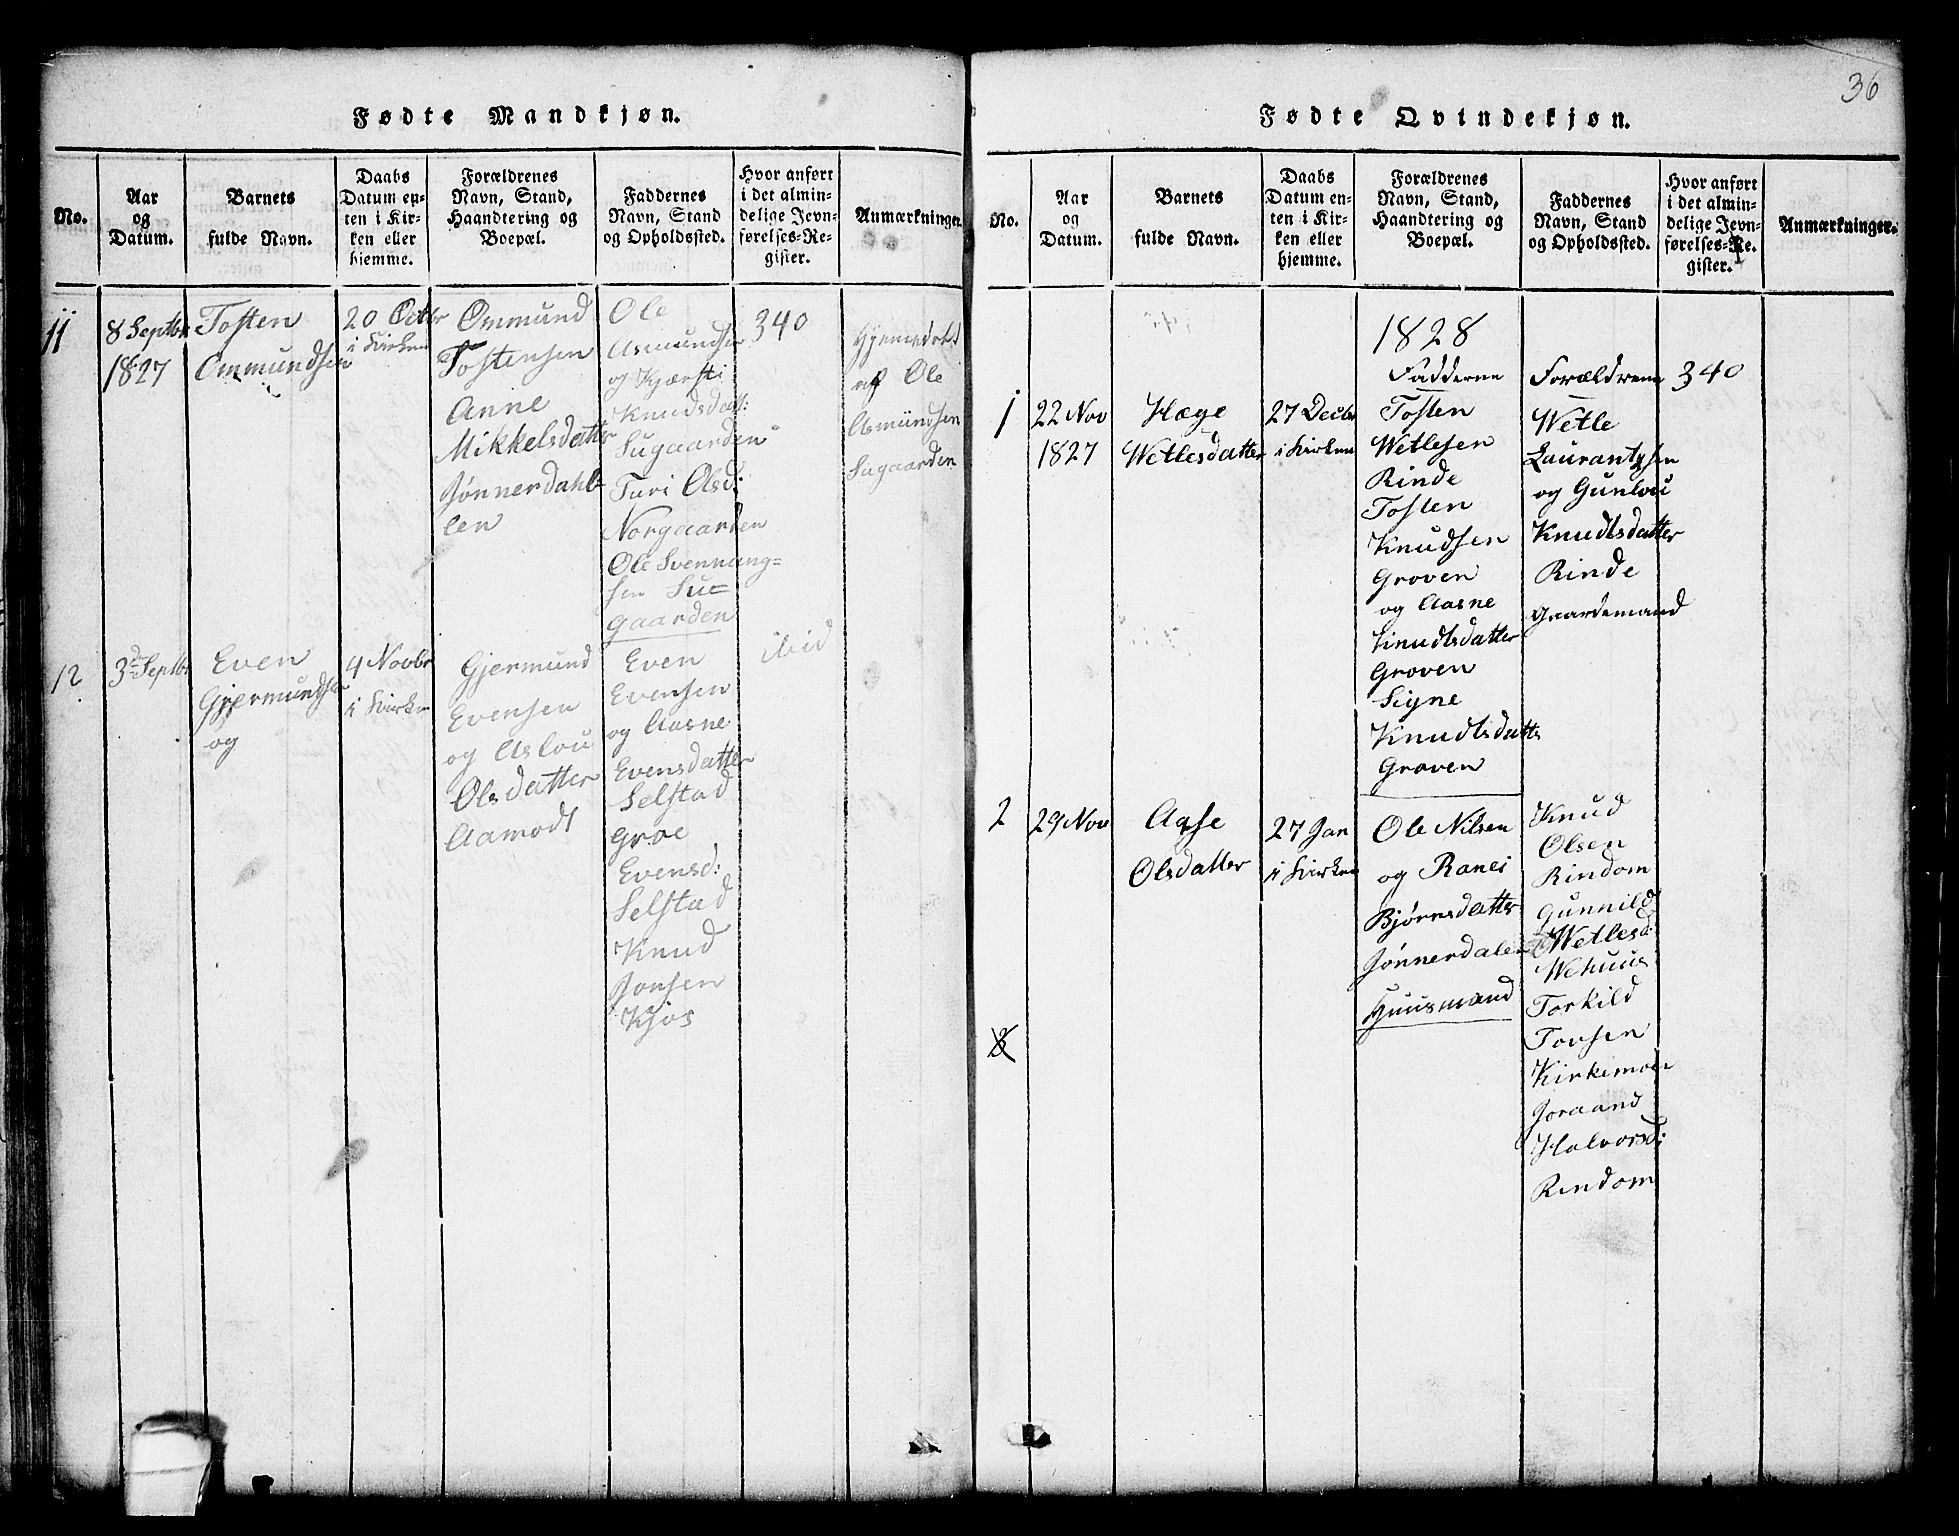 36
Fødte Mandkjøn.
No.
Aar
og
Datum.
Barnets
fulde Navn.
Daabs
Datum en-
ten i Kir-
ken eller
hjemme.
Forældrenes
Navn, Stand,
Haandtering og
Boepæl.
Faddernes
Navn, Stand
og Opholdssted.
Hvor anført
i det almin-
delige Jevn-
førelses-Re-
gister.
Anmærkninger.
11
8 Septbr
1827
Tosten
Ommundsen
20 Octbr
i Kirken
Ommund
Tostensen
Anne
Mikkelsdatter
Jønnerdahl-
len
Ole
Asmundsen
og Kjærsti
Knudsdat:
Sugaarden
Turi Olsd:
Norgaarden
Ole Svennung-
sen Su-
gaarden
340
Hjemedøbt
af Ole
Asmundsen
Sugaarden
12
3d Septbr
Even
Gjermundsen
og
4 Novbr
i Kirken
Gjermund
Evensen
og Aslou
Olsdatter
Aamodt
Even
Evensen
og Aasne
Evensdatter
Selstad
Groe
Evensd:
Selstad
Knud
Jonsen
Kjos
ibid
Fødte Qvindekjøn.
No.
Aar
og
Datum.
Barnets
fulde Navn.
Daabs
Datum en-
ten i Kir-
ken eller
hjemme.
Forældrenes
Navn, Stand,
Haandtering og
Boepæl.
Faddernes
Navn, Stand
og Opholdssted.
Hvor anført
i det almin-
delige Jevn-
førelses-Re-
gister.
Anmærkninger.
1828
1
22 Nov
1827
Hæge
Wetlesdatter
27 Decbr
i Kirken
Fadderne
Tosten
Wetlesen
Rinde
Tosten
Knudsen
Groven
og Aasne
Knudtsdatter
Groven
Signe
Knudtsdatter
Groven
Forældrene
Wetle
Laurantzsen
og Gunlou
Knudtsdatter
Rinde
Gaardemand
340
2
29 Nov
Aase
Olsdatter
27 Jan
i Kirken
Ole Nilsen
og Ranei
Bjørnsdatter
Jønnerdalen
Huusmand
Knud
Olsen
Rindom
Gunnild
Wetlesd:
Wehuus
Torkild
Tovsen
Kirkemoen
Joraand
Halvorsd:
Rindom
3